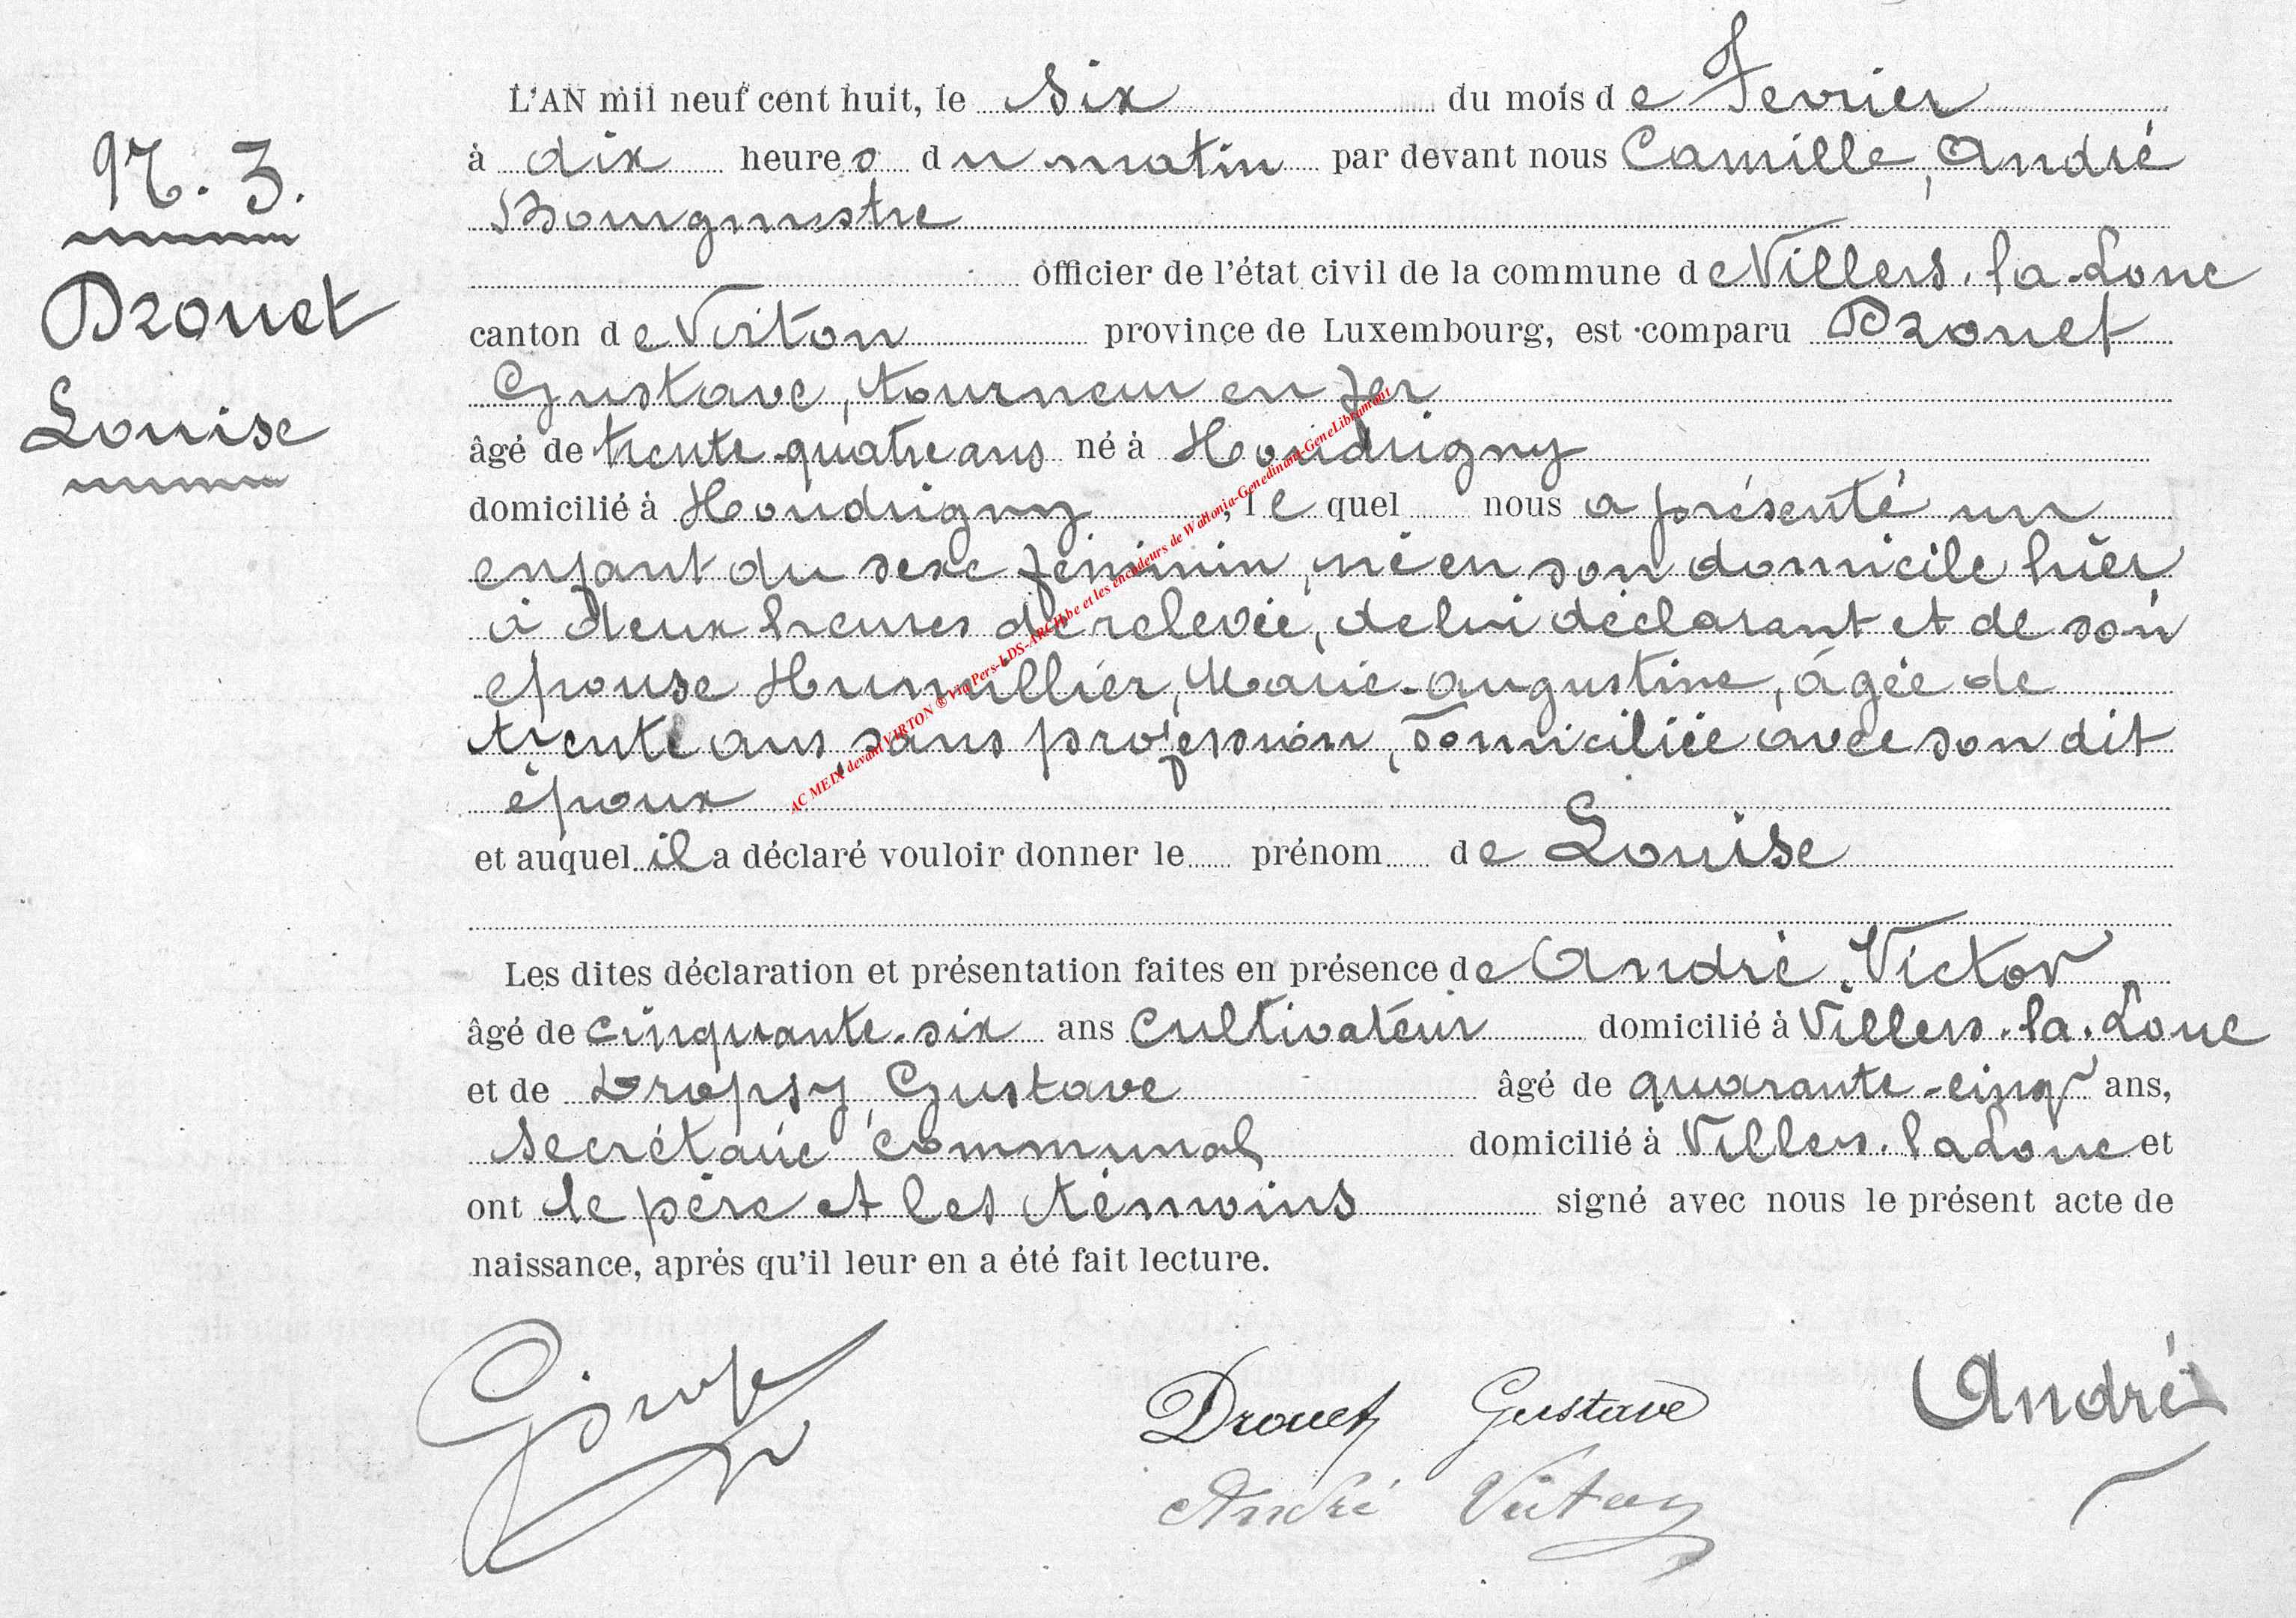 N. 3.
Drouet
Louise
L'AN mil neuf cent huit, le six du mois de Fevrier
à dix heures du matin par devant nous Camille, André
Bourgmestre
officier de l'état civil de la commune de Villers-la-Loue
canton de Virton province de Luxembourg, est comparu Drouet
Gustave, tourneur en fer
âgé de trente-quatre ans né à Houdrigny
domicilié à Houdrigny, lequel nous a présenté un
enfant du sexe féminin, né en son domicile hier
à deux heures de relevée, de lui déclarant et de son
épouse Marie-Augustine, âgée de
trente ans, sans profession, domiciliée avec son dit
époux
et auquel il a déclaré vouloir donner le prénom de Louise
Les dites déclaration et présentation faites en présence de André, Victor
âgé de cinquante-six ans Cultivateur domicilié à Villers-la-Loue
et de Dropsy, Gustave âgé de quarante-cinq ans,
secrétaire communal domicilié à Villers-la-Loue et
ont le père et les témoins signé avec nous le présent acte de
naissance, après qu'il leur en a été fait lecture.
Drouet Gustave
André
André Victor
AC MEIX devant VIRTON ® Via Pers-LDS-ARCH.be et les encodeurs de Wallonia-Genedinant-GeneLibramont